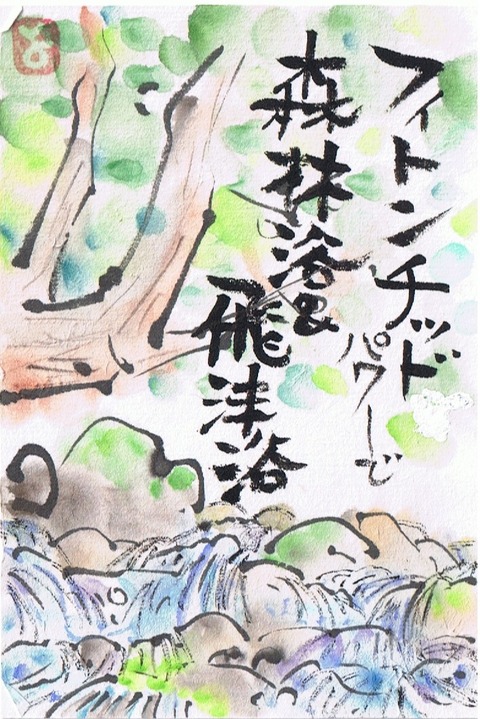 フィトンチッド
パワーで
森林浴&
飛沫浴